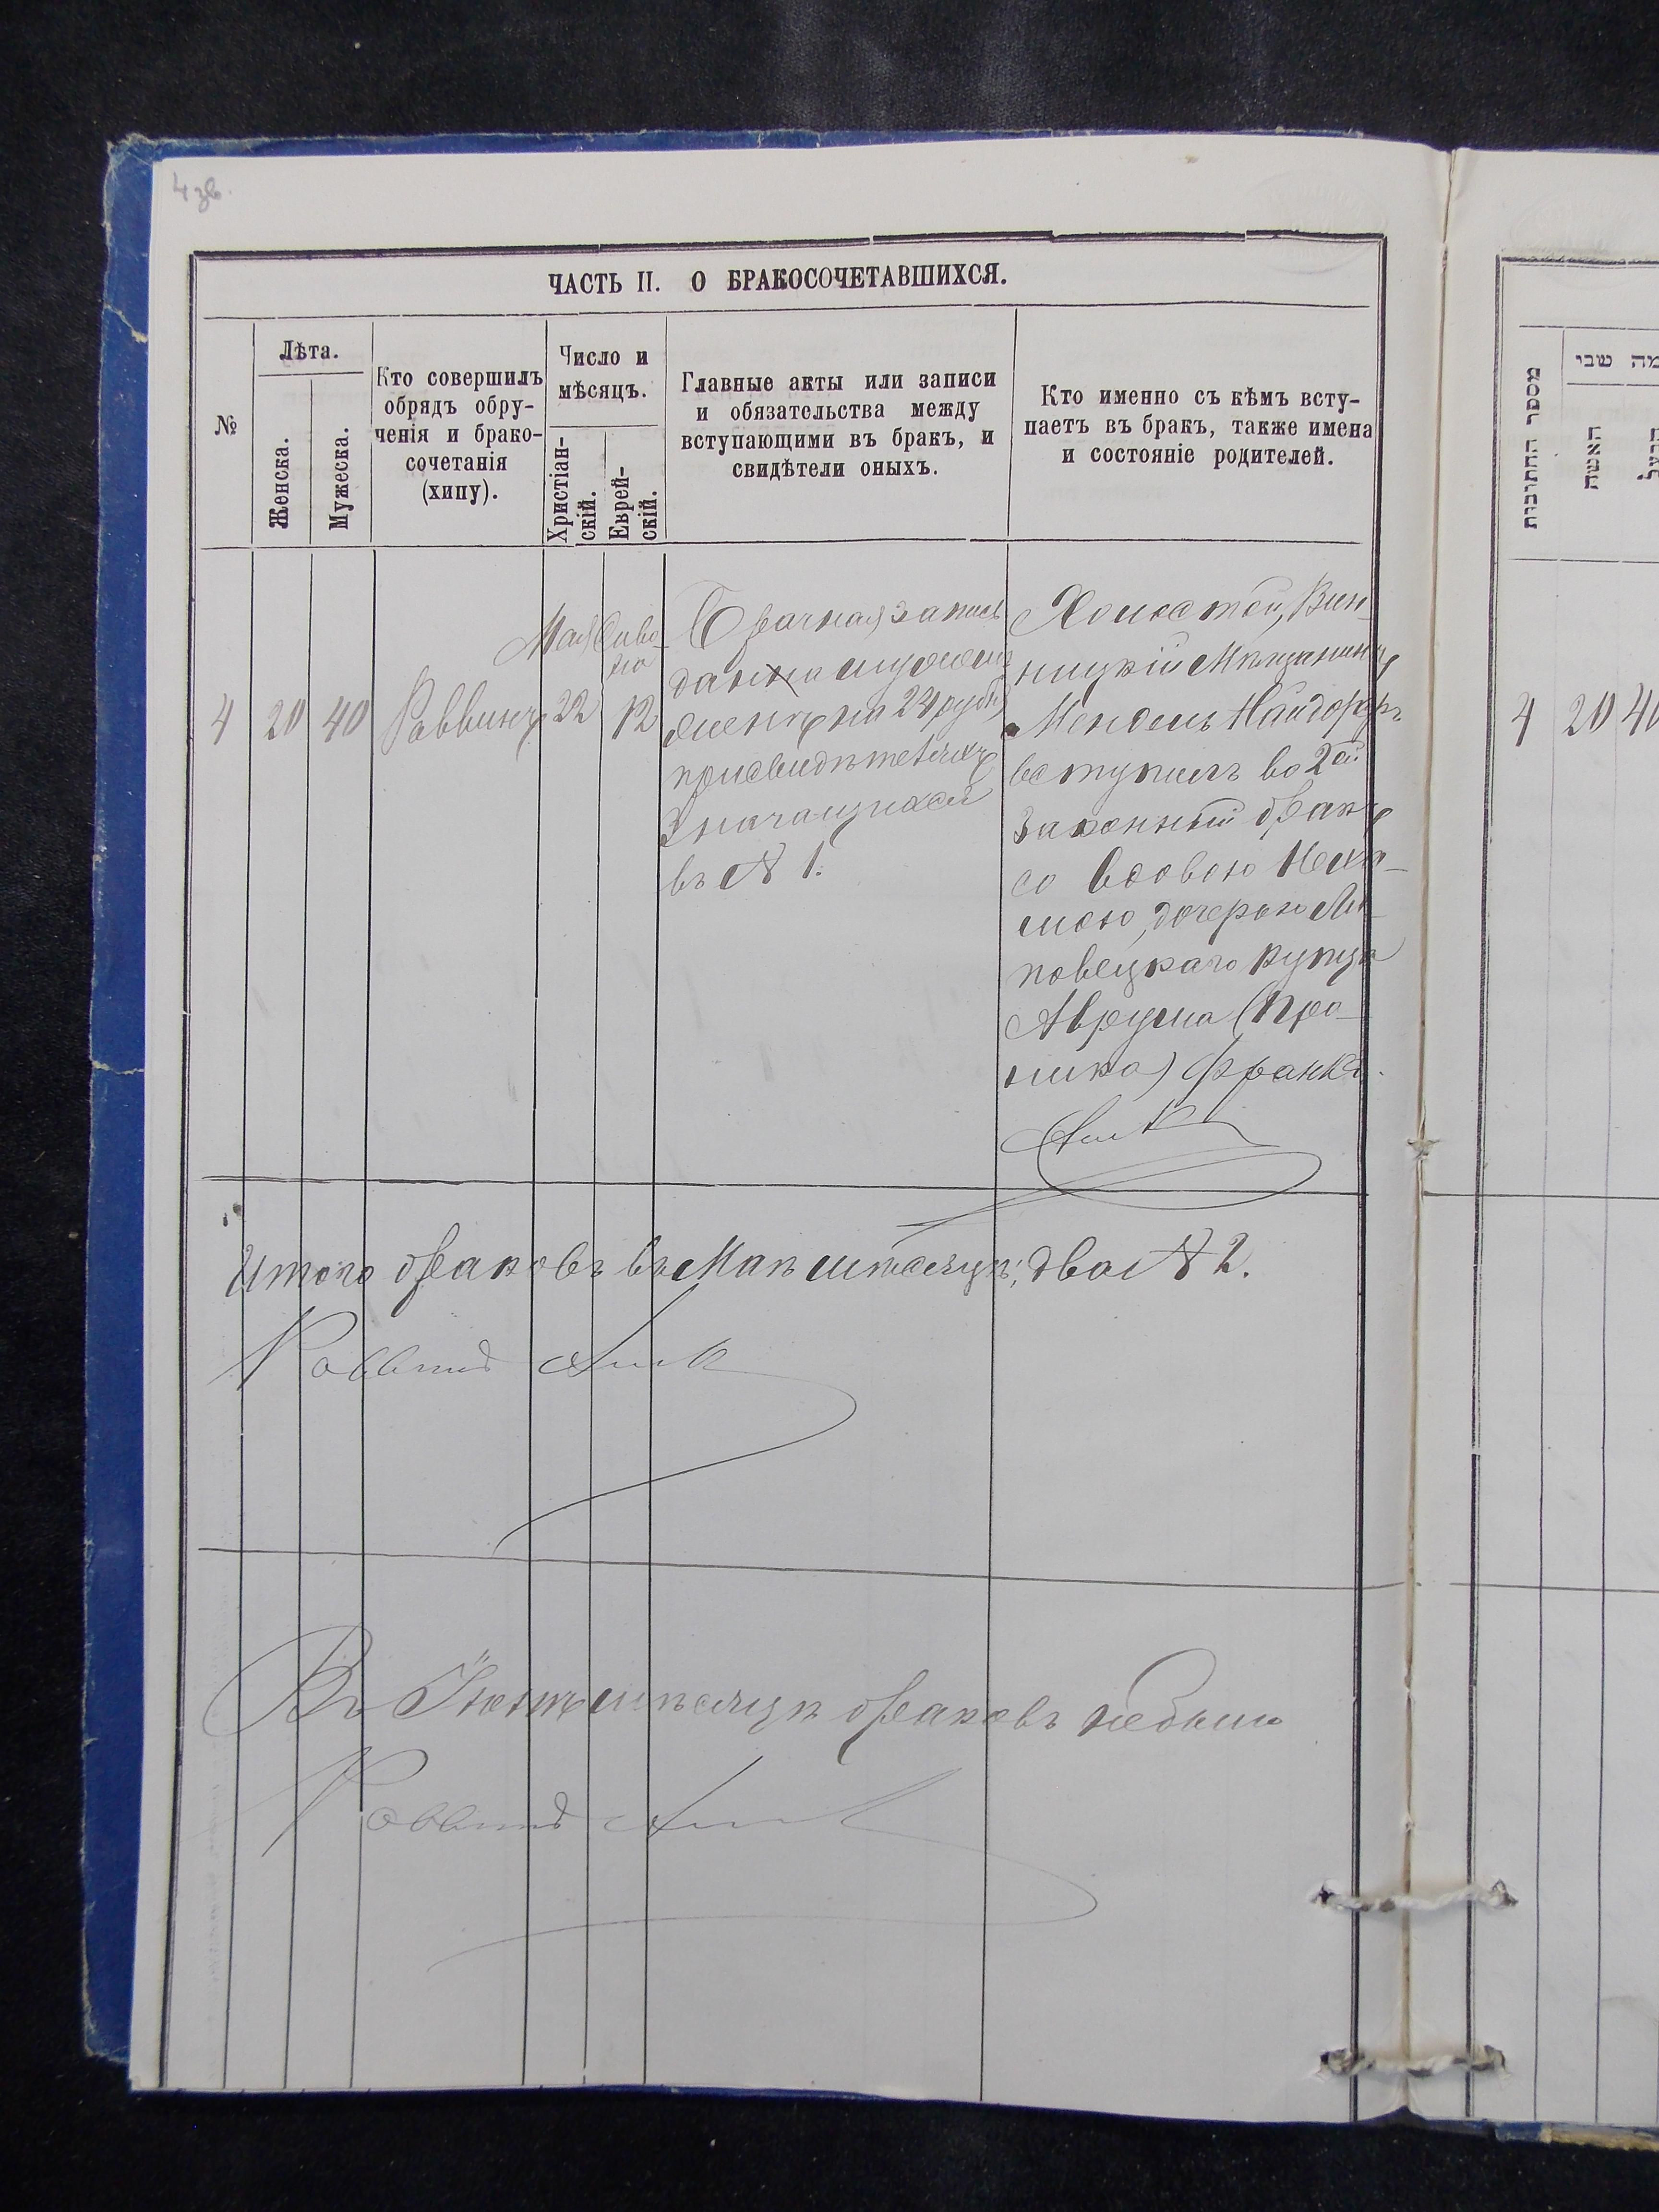 4 зв.
ЧАСТЬ II. О БРАКОСОЧЕТАВШИХСЯ.
№
Лѣта.
Женска.
Мужеска.
Кто совершилъ
обрядъ обру-
ченія и брако-
сочетанія
(хипу).
Число и
мѣсяцъ.
Христіан-
скій.
Еврей-
скій.
Главные акты или записи
и обязательства между
вступающими въ бракъ, и
свидѣтели оныхъ.
Кто именно съ кѣмъ всту-
паетъ въ бракъ, также имена
и состояніе родителей.
4
20
40
Раввинъ
Мая
22
Сиво-
на
12
Брачная запись
данна мужемъ
женѣ на 24 руб.
при свидѣтеляхъ
значащихся
въ № 1.
Холостой, Вин-
ницкій Мѣщанинъ
Мендель Найдорфъ
вступилъ во 2ой
законный бракъ
со вдовою Неха-
мою, дочерью Ли-
повецкаго купца
Аврума
Франка.
Итого браковъ въ Маѣ мѣсяцѣ, два № 2.
Раввинъ
Въ Іюнѣ мѣсяцѣ браковъ небыло
Раввинъ
מספר החתונות
מה שבי
האשה
4
20
40